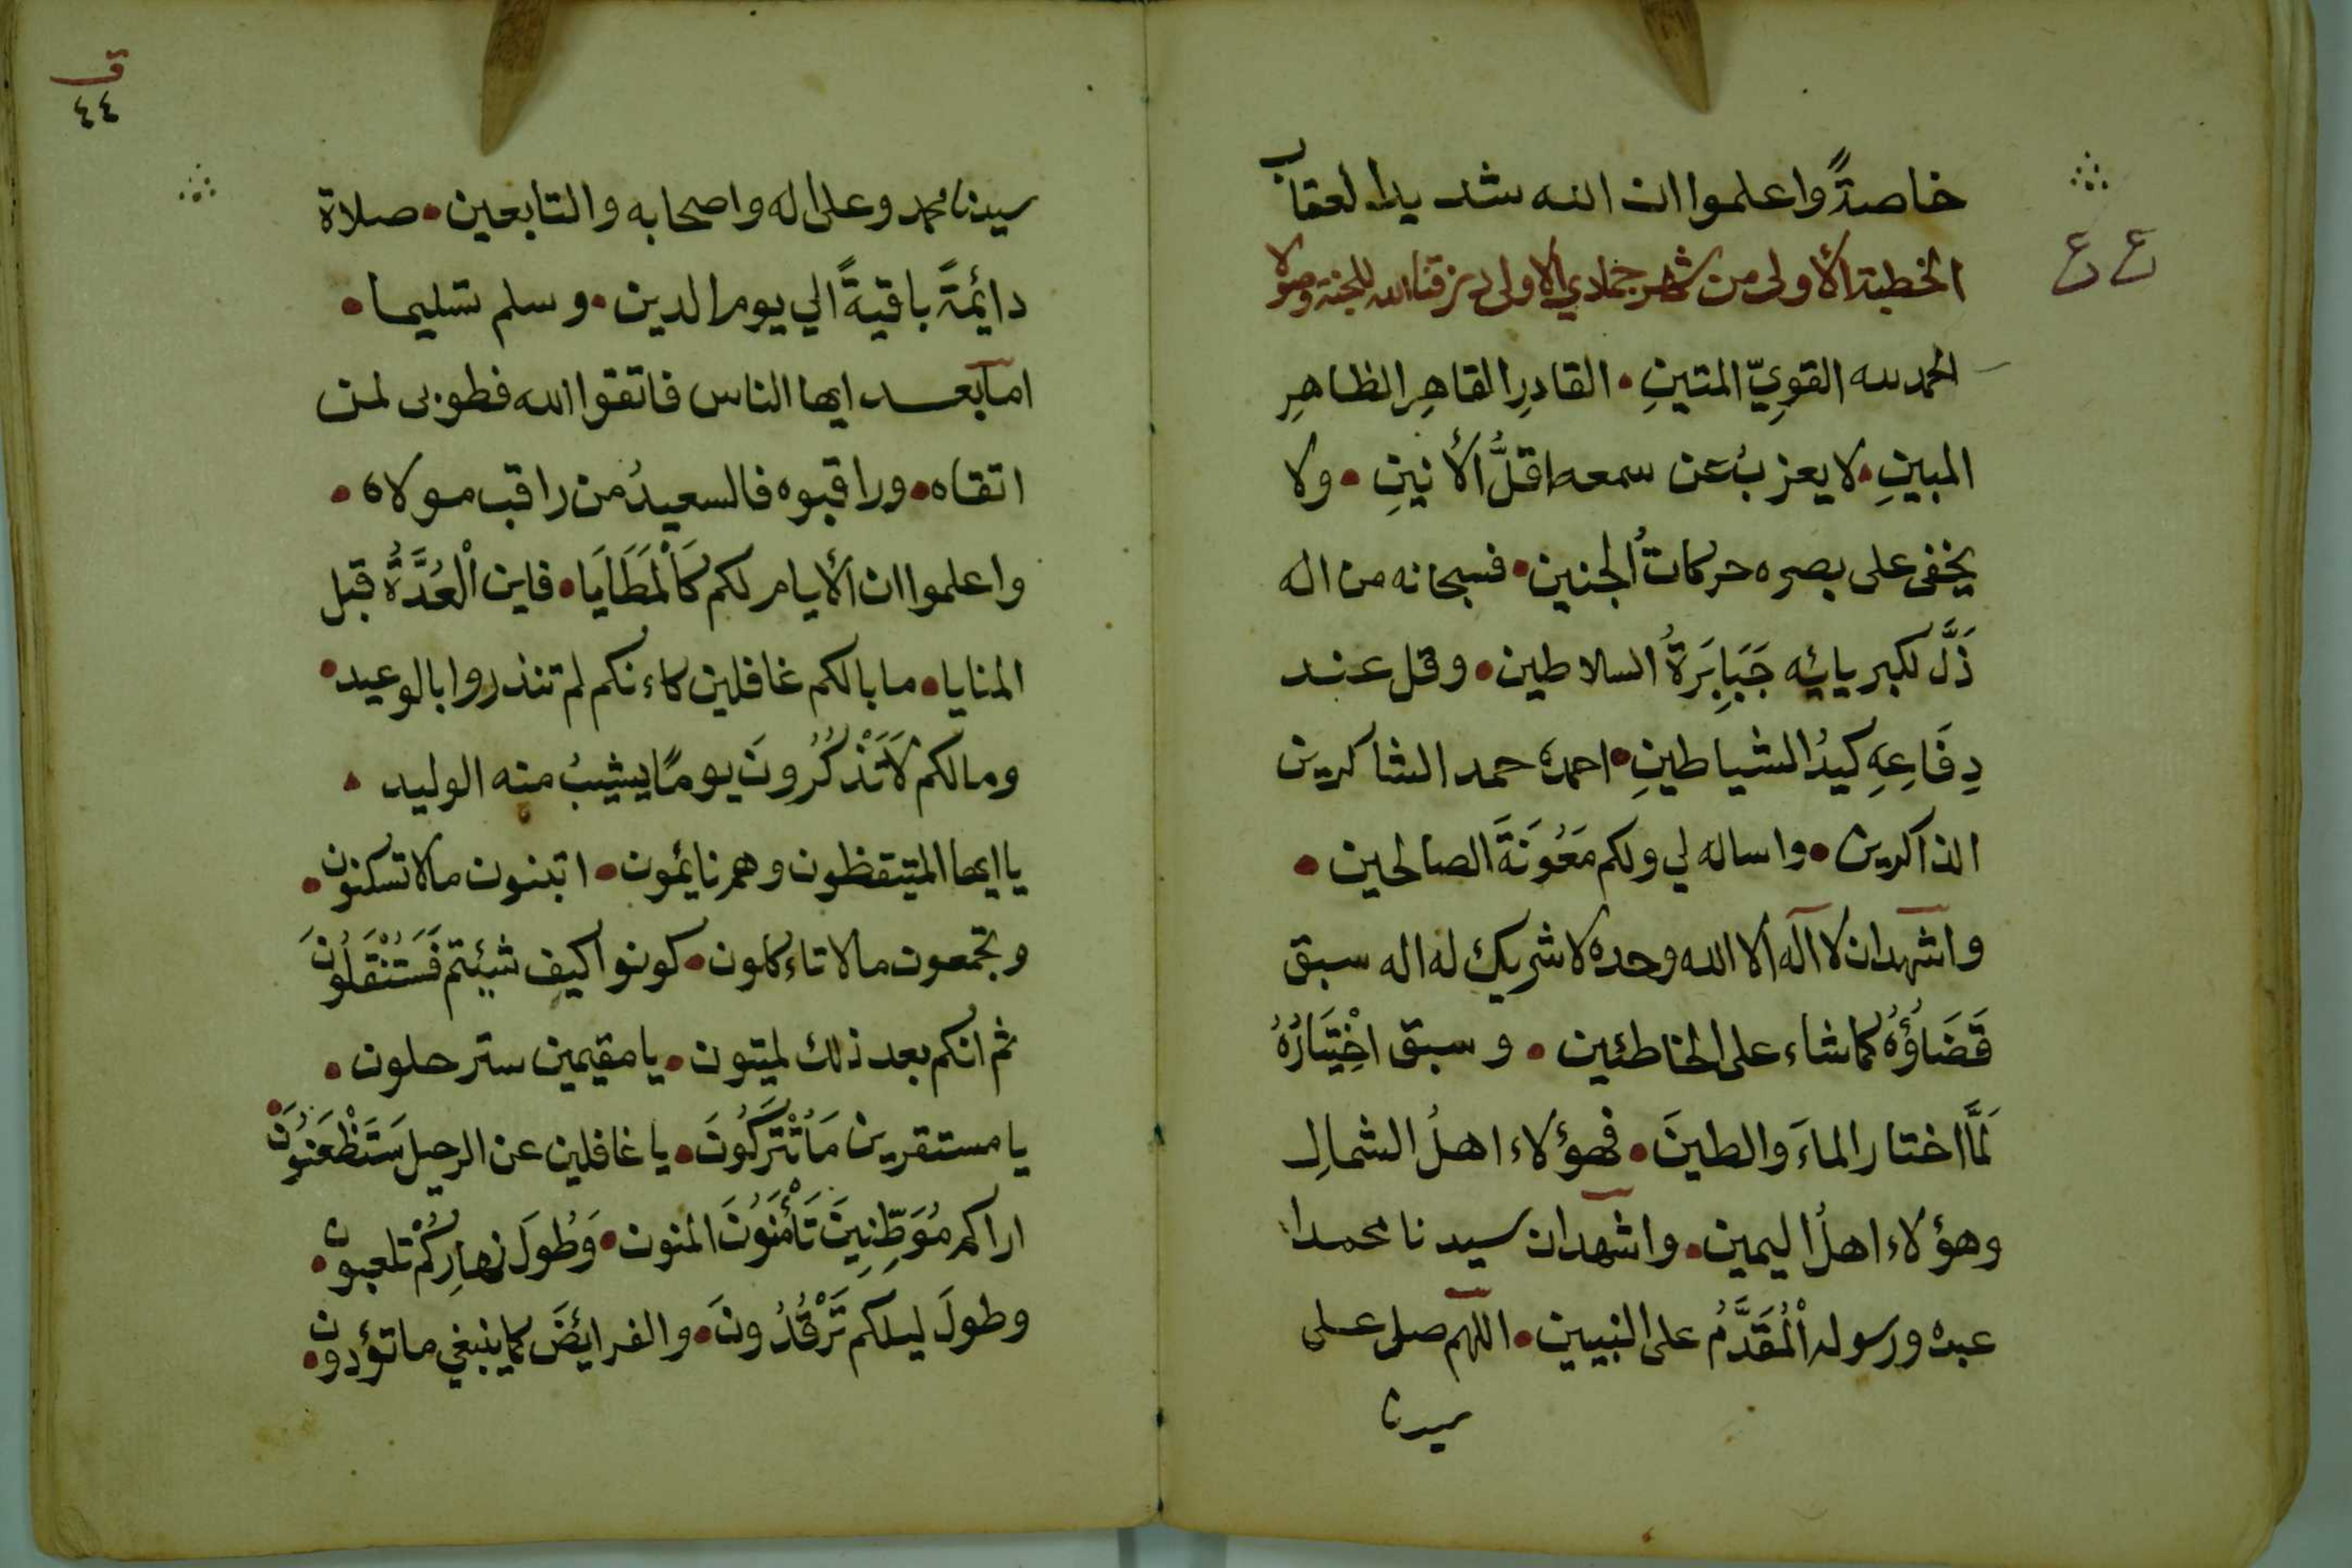 خاصةً واعلموا ان الله شديد العقاب
الخطبة الأولى من شهر جمادي الاولى رزقنا الله للجنة وصولا
ع ع
الحمد لله القويّ المتينِ • القادرِ القاهِر الظاهِرِ
المبينِ • لا يعزبُ عن سمعه اقلُّ الأنينِ • ولا
يخفى على بصره حركاتُ الجنين • فسبحانه من اله
ذَلَّ لكبريائِه جَبَابِرَةُ السلاطين • وقل عند
دِفَاعِهِ كيدُ الشياطينِ • احمده حمد الشاكرين
الذاكرين • واساله لي ولكم مَعُونَةَ الصالحين •
واشهد ان لا اله الا الله وحده لا شريك له اله سبق
قَضَاؤُهُ كما شاء على الخاطئين • وسبق اخْتِيَارُهُ
لَمَّا اختار الماءَ والطينَ • فهؤلاء اهلُ الشمالِ
وهؤلاء اهلُ اليمين • واشهد ان سيدنا محمدا
عبده ورسوله الْمُقَدَّمُ على النبيين • اللهم صل على
سيدنا
ق
٤٤
سيدنا محمد وعلى اله واصحابه والتابعين • صلاة
دائِمَةً باقيةً الي يوم الدين • وسلم تسليما •
اما بعد ايها الناس فاتقوا الله فطوبى لمن
اتقاه • وراقبوه فالسعيدُ من راقب مولاه •
واعلموا ان الأيام لكم كَالْمَطَايَا • فاين الْعُدَّةُ قبل
المنايا • ما بالكم غافلين كاءنكم لم تنذروا بالوعيد •
ومالكم لَا تَذْكُرُونَ يومًا يشيبُ منه الوليد •
يا ايها المتيقظون وهم نايمون • اتبنون مالا تسكنون •
وتجمعون مالا تاءكلون • كونوا كيف شيئتم فَسَتُنْقَلُونَ
ثم انكم بعد ذلك لميتون • يا مقيمين سترحلون •
يا مستقرين مَا تُتْرَكُونَ • يا غافلين عن الرحيل سَتَظْعَنُونَ •
اراكم مُوَطِّنِينَ تَأْمَنُونَ المنون • وَطُولَ نهارِكُمْ تلعبون •
وطولَ ليلِكم تَرْقُدُونَ • والفرايئضَ كما ينبغي ما تؤدون •